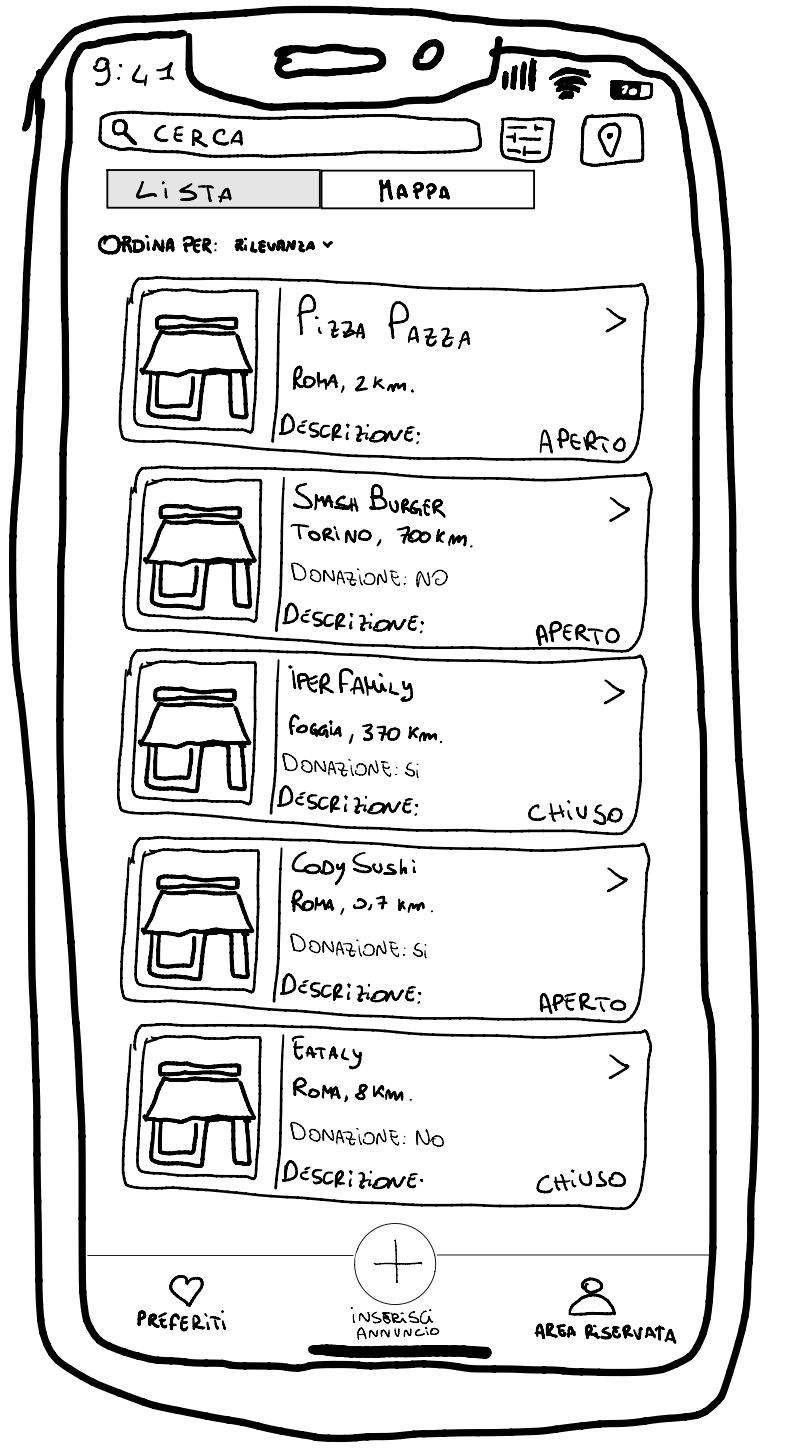 9:41
CERCA
LiSTA
MAPPA
ORDiNA PER: RiLEVANZA
PiZZA PAZZA
ROMA, 2 Km.
DESCRiZiONE:
APERTO
SMASH BURGER
TORiNO, 700 Km.
DONAZiONE: NO
DESCRiZiONE:
APERTO
iPERFAMiLy
FOGGiA, 370 Km.
DONAZiONE: Si
DESCRiZiONE:
CHiUSO
CODy SUSHi
ROMA, 0,7 Km.
DONAZiONE: Si
DESCRiZiONE:
APERTO
EATALy
ROMA, 8 Km.
DONAZiONE: NO
DESCRiZiONE.
CHiUSO
PREFERiTi
iNSERiSCi
ANNUNCiO
AREA RiSERVATA